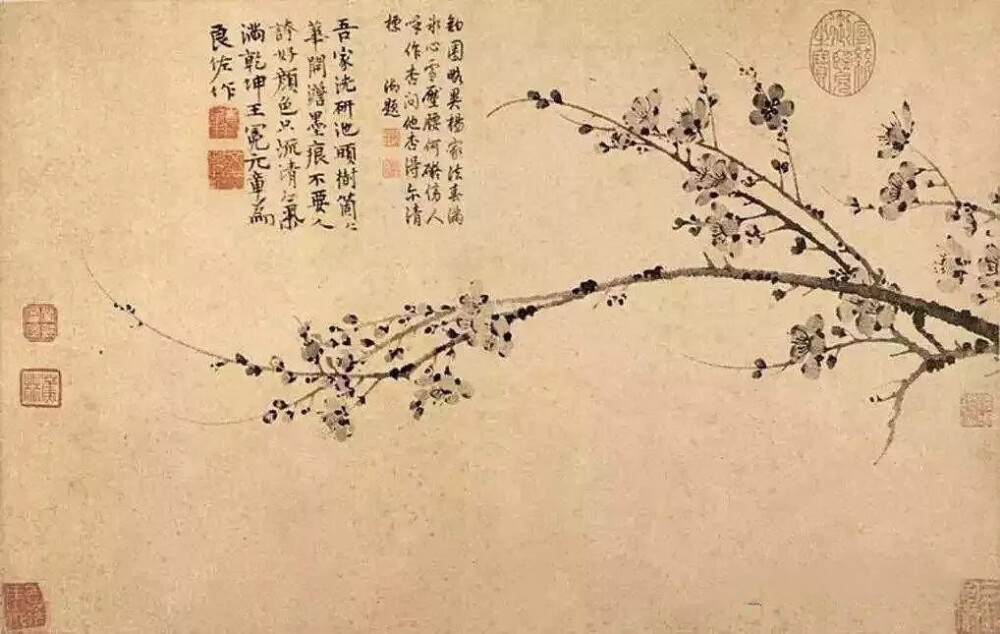 鈎圈畧異楊家法春滿
冰心雪壓腰何礙傍人
呼作杏問他杏得尓清
標
御題
吾家洗研池頭樹箇〻
華開澹墨痕不要人
誇好顏色只流清氣
滿乾坤王冕元章為
良佐作